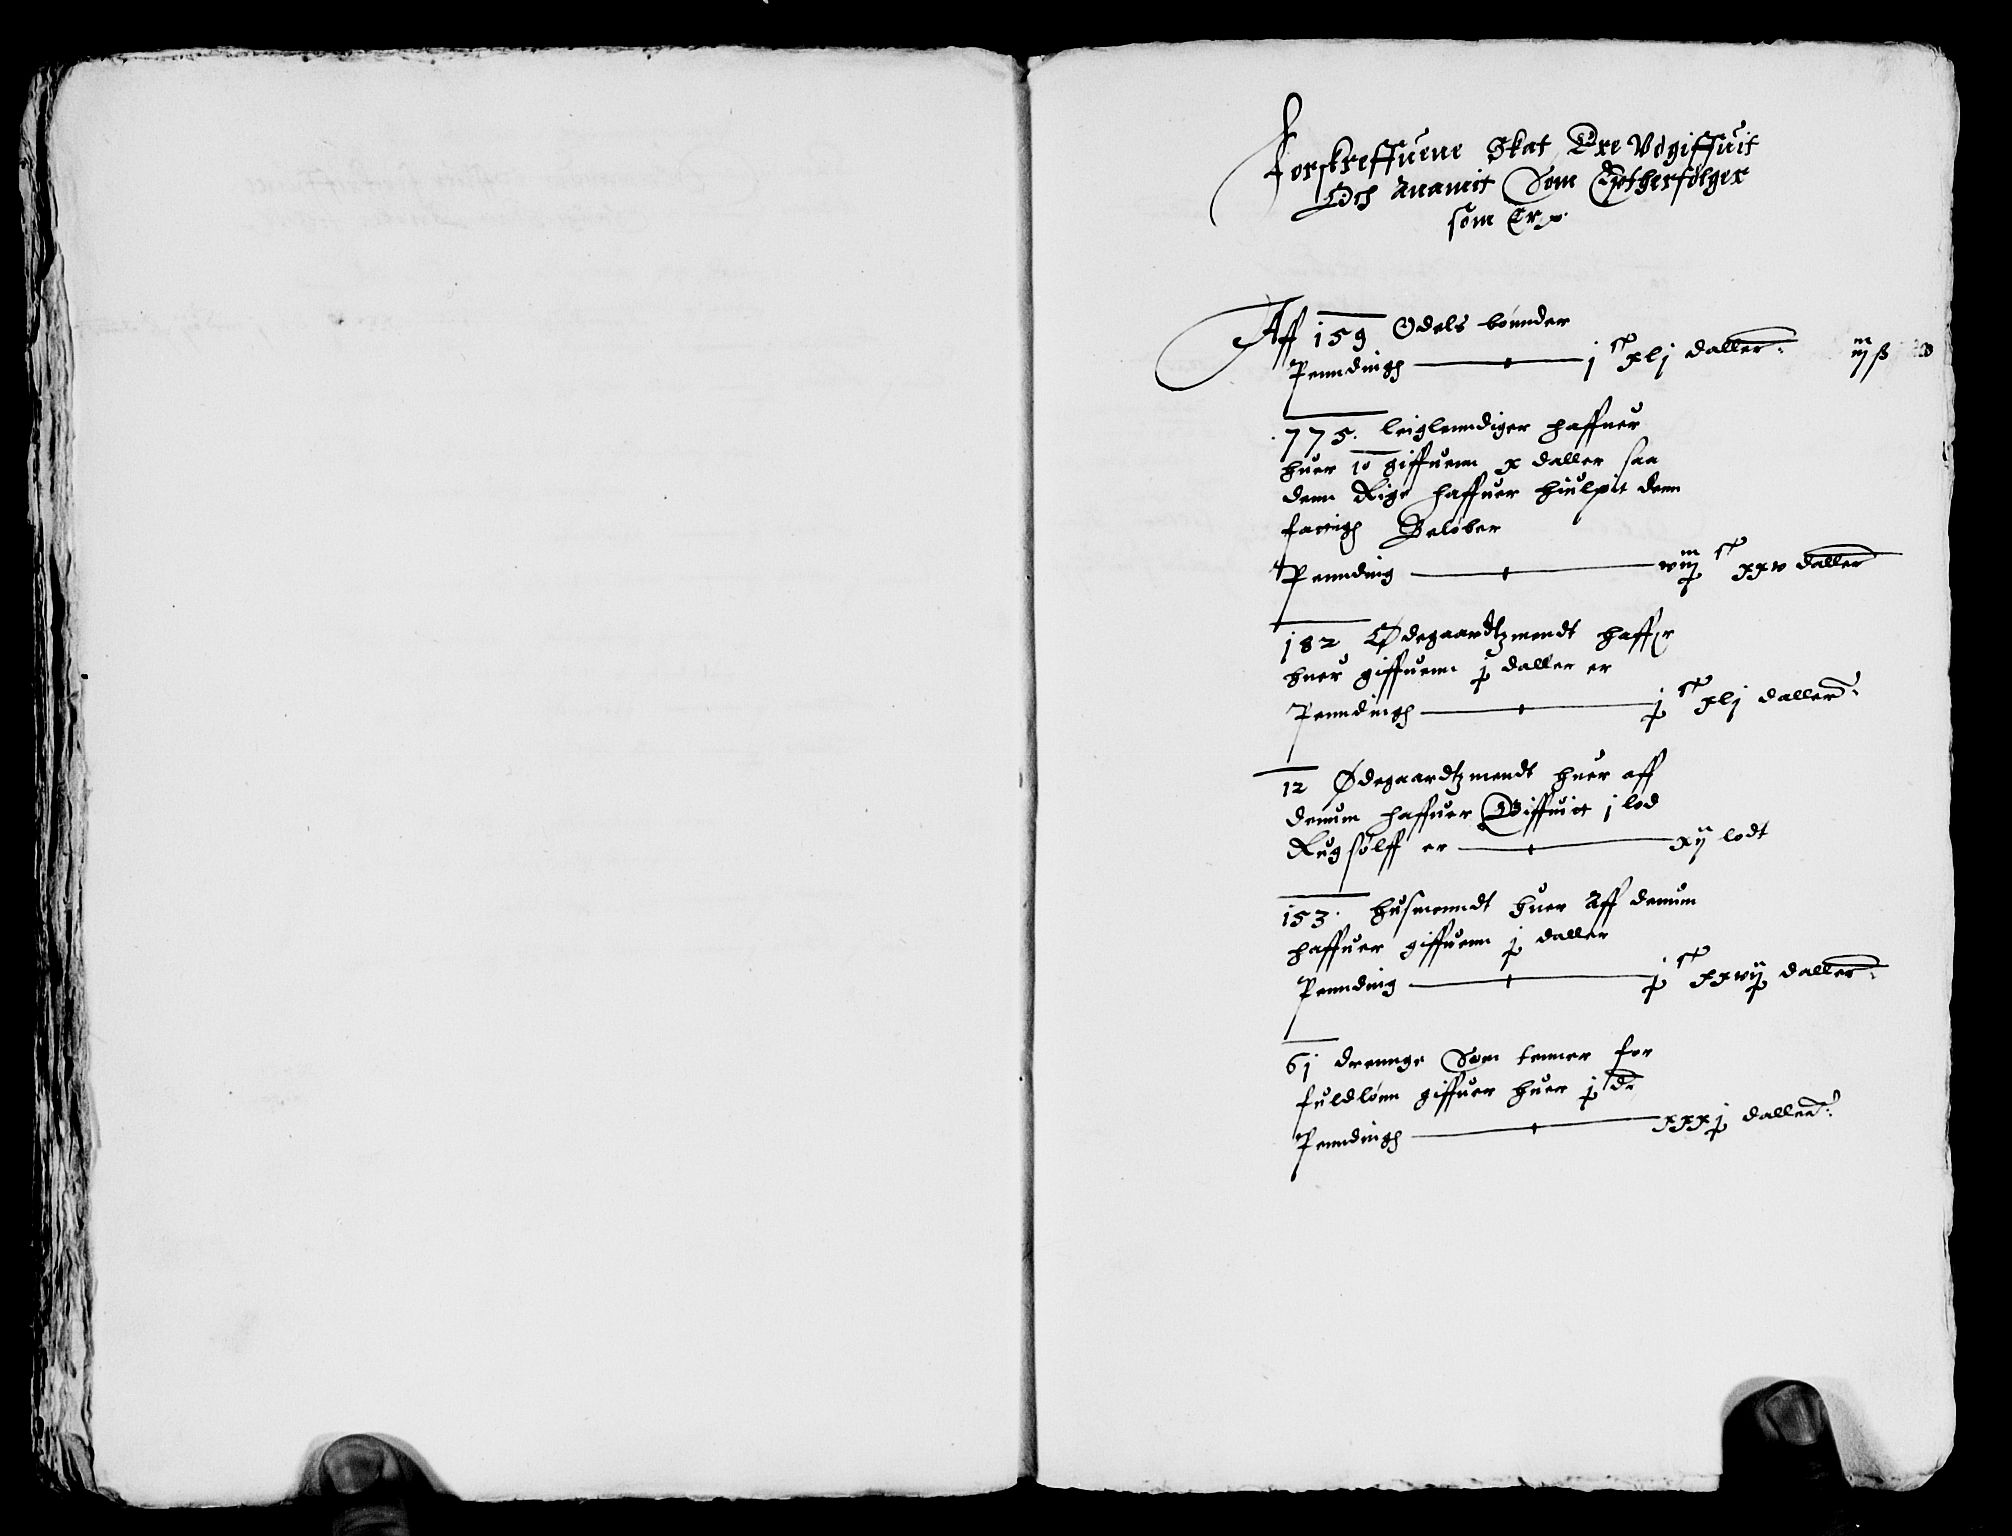 Forskreffuene Skat Ere Vdgiffuit
Och Anamit Som Eptherfølger
som Er
Aff 159 Odels bønnder
Penndingh — j c xlj daller iij ß
775. leiglenndiger haffuer
huer 10 giffuenn x daller saa
denn Rige haffuer hiulpit denn
fattigh Beløber
Penndingh — c xxv daller
182 Ødegaardtzmendt haffr
huer giffuenn j daller er
Penndingh — j c xlj daller
12 Ødegaardtzmendt huer aff
dennum haffuer Giffuit j lod
sølff er — xij lodt
153. husmenndt huer Aff dennum
haffuer giffuenn j daller
Pennding — j c xxvij daller
61 drennge Som tenner for
fuldlønn giffuer huer j dr
Penndingh — xxxj daller